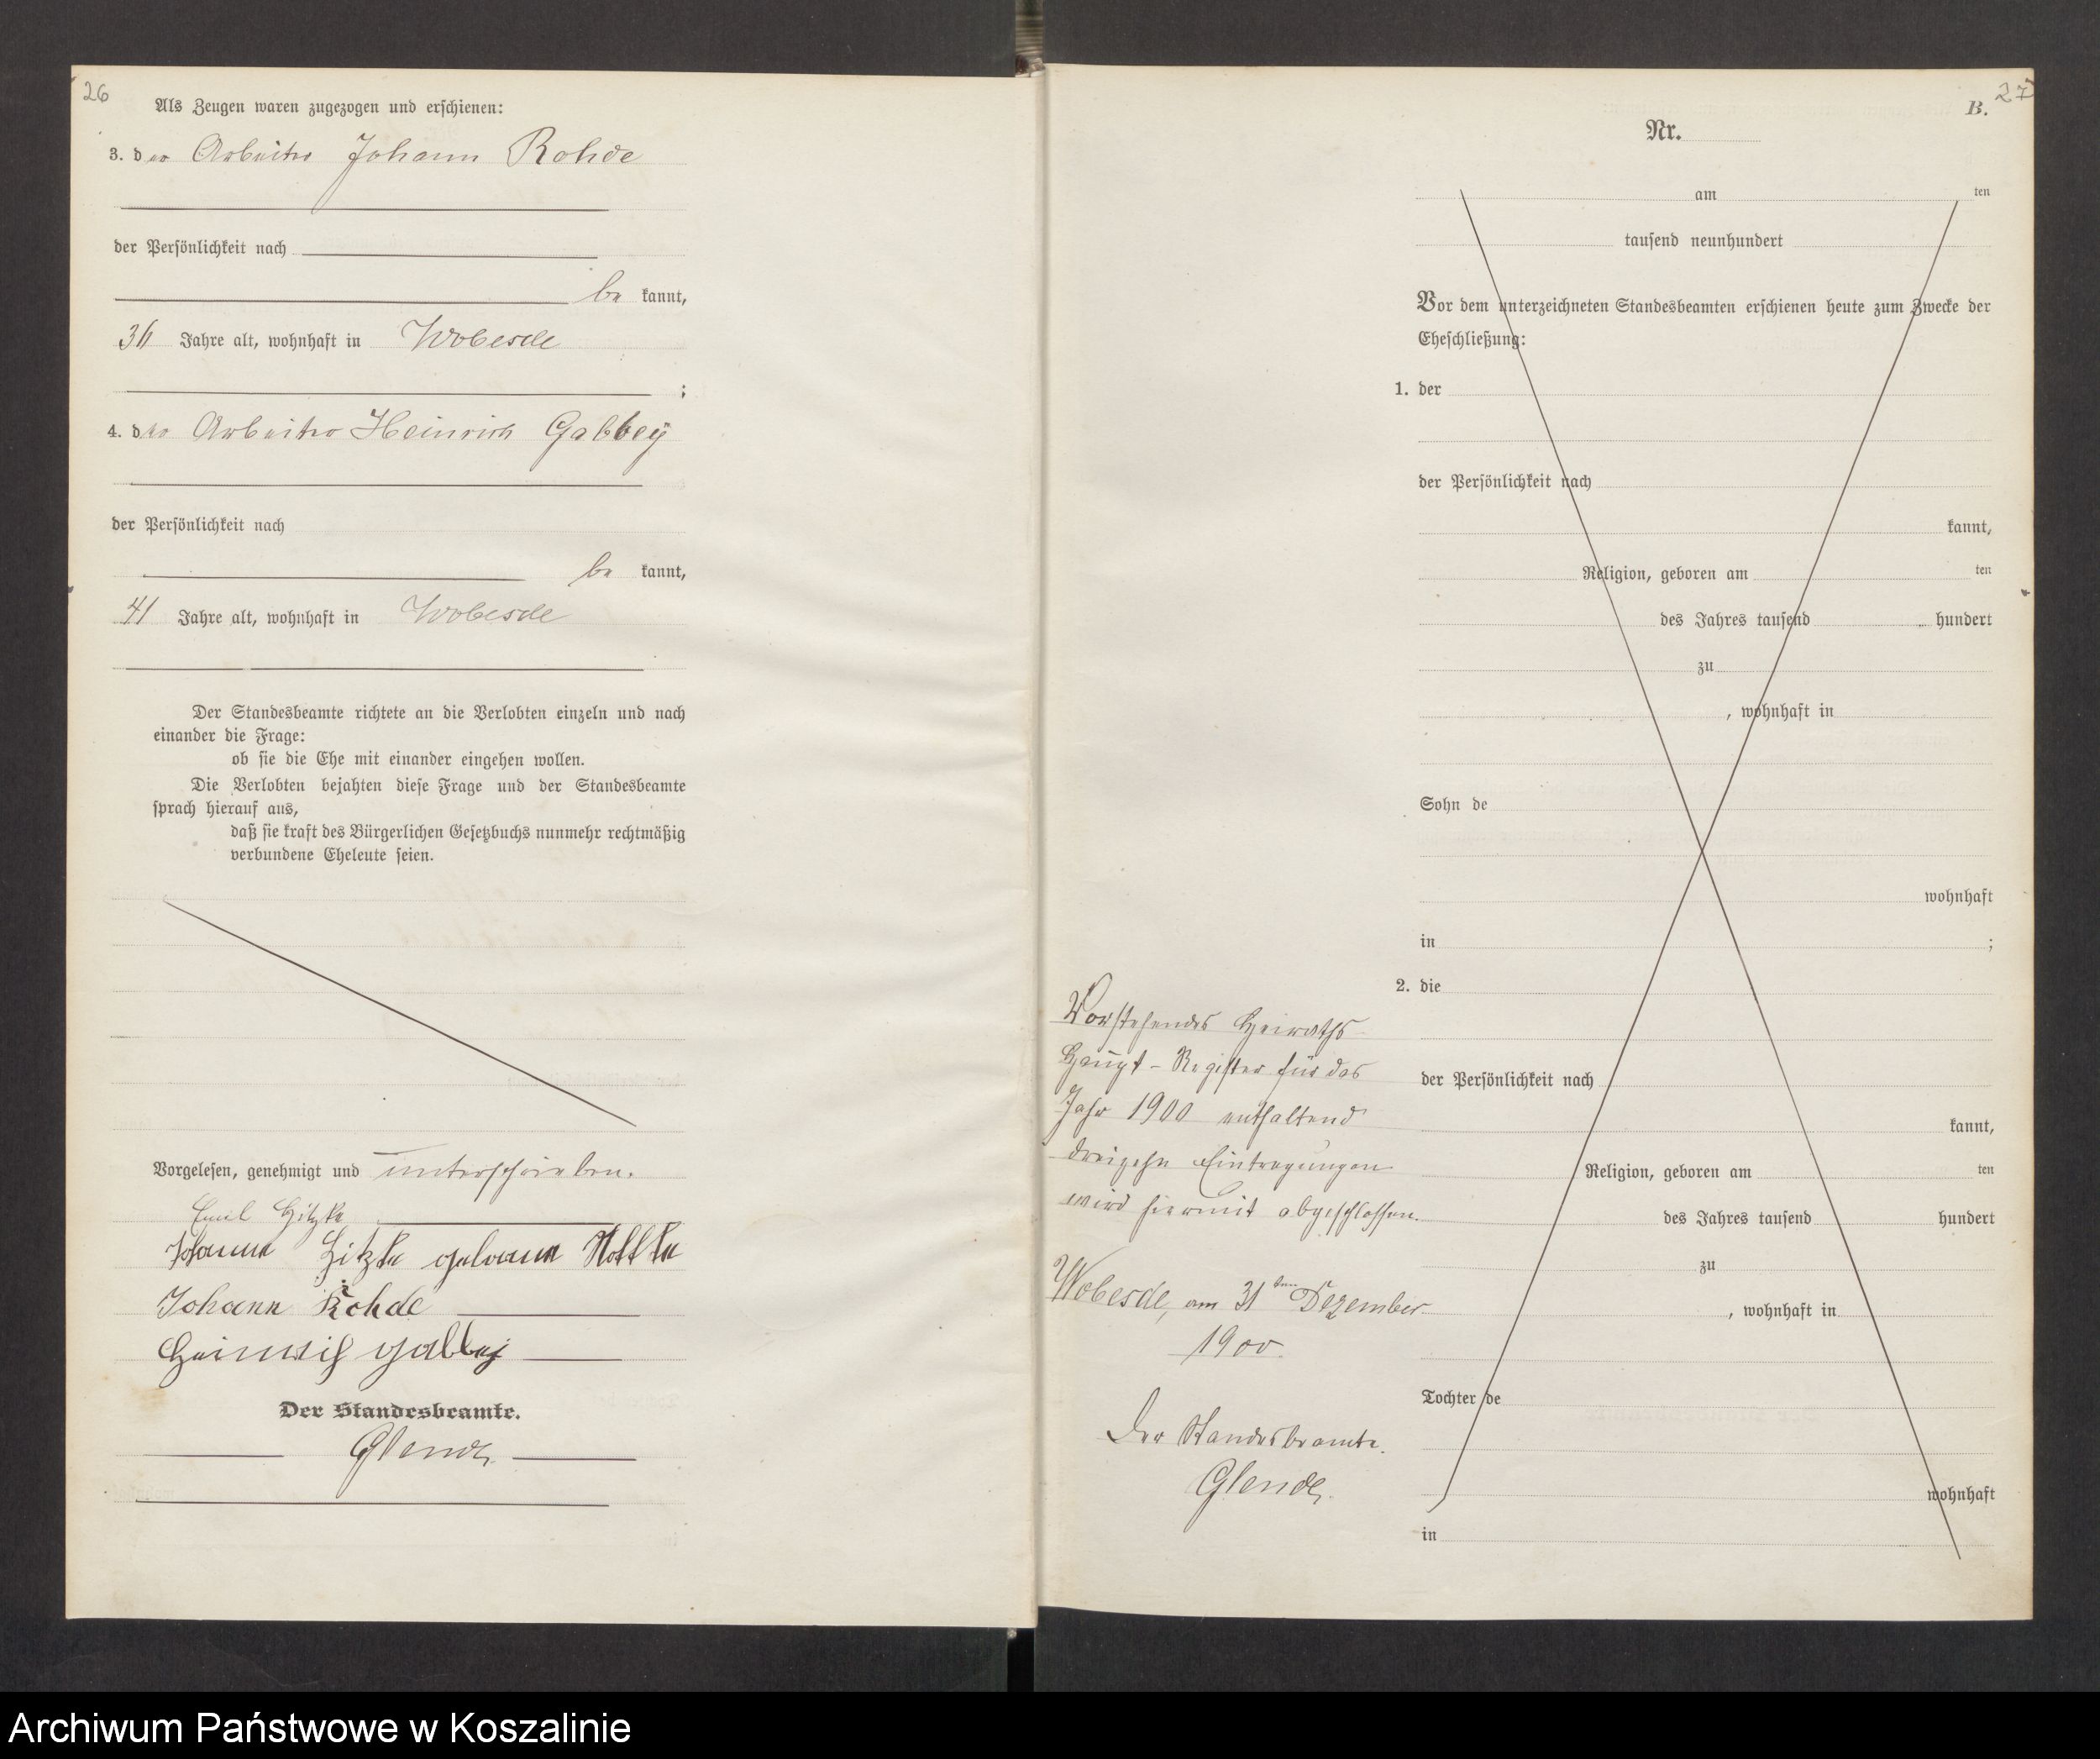 26
Als Zeugen waren zugezogen und erschienen:
3. der Arbeiter Johann Rohde
der Persönlichkeit nach
be kannt,
36 Jahre alt, wohnhaft in Wobesde
;
4. der Arbeiter Heinrich Gabbey
der Persönlichkeit nach
be kannt,
41 Jahre alt, wohnhaft in Wobesde
Der Standesbeamte richtete an die Verlobten einzeln und nach
einander die Frage:
ob sie die Ehe mit einander eingehen wollen.
Die Verlobten bejahten diese Frage und der Standesbeamte
sprach hierauf aus,
daß sie kraft des Bürgerlichen Gesetzbuchs nunmehr rechtmäßig
verbundene Eheleute seien.
Vorgelesen, genehmigt und unterschrieben.
Emil Hitzke
Hitzke geborene
Johann Rohde
Heinrich Gabbey
Der Standesbeamte.
Glende
27
B.
Nr.
am ten
tausend neunhundert
Vor dem unterzeichneten Standesbeamten erschienen heute zum Zwecke der
Eheschließung:
1. der
der Persönlichkeit nach
kannt,
Religion, geboren am ten
des Jahres tausend hundert
zu
, wohnhaft in
Sohn de
wohnhaft
in ;
2. die
der Persönlichkeit nach
kannt,
Religion, geboren am ten
des Jahres tausend hundert
zu
, wohnhaft in
Tochter de
wohnhaft
in
Vorstehendes Heiraths-
Haupt-Register für das
Jahr 1900 enthaltend
dreizehn Eintragungen
wird hiermit abgeschlossen.
Wobesde, am 31ten Dezember
1900.
Der Standesbeamte.
Glende
Archiwum Państwowe w Koszalinie